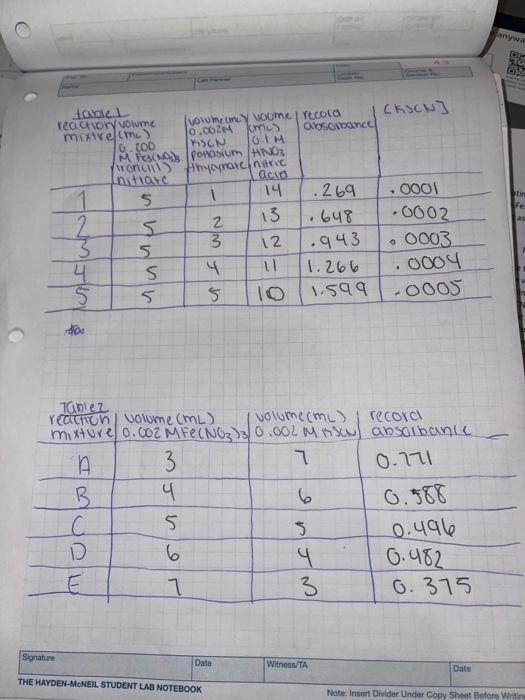 table 1
reaction mixture | volume (mL) 0.200 M Fe(NO3)3 iron(III) nitrate | volume (mL) 0.002M KSCN potassium thiocyanate | volume (mL) 0.1M HNO3 nitric acid | record absorbance | [KSCN]
1 5 1 14 .269 .0001
2 5 2 13 .648 .0002
3 5 3 12 .943 .0003
4 5 4 11 1.266 .0004
5 5 5 10 1.599 .0005
Table 2
reaction mixture | volume (mL) 0.002 M Fe(NO3)3 | volume (mL) 0.002 M KSCN | record absorbance
A 3 7 0.771
B 4 6 0.588
C 5 5 0.496
D 6 4 0.482
E 7 3 0.375
Signature Date Witness/TA Date
THE HAYDEN-McNEIL STUDENT LAB NOTEBOOK
Note: Insert Divider Under Copy Sheet Before